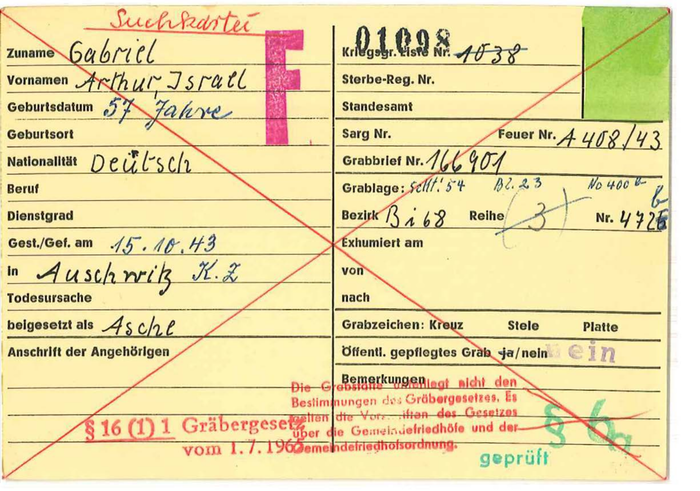 Suchkartei
Zuname Gabriel
Vornamen Arthur, Israel
Geburtsdatum 57 Jahre
Geburtsort
Nationalität Deutsch
Beruf
Dienstgrad
Gest./Gef. am 15.10.43
in Auschwitz K.Z
Todesursache
beigesetzt als Asche
Anschrift der Angehörigen
F
§ 16 (1) 1 Gräbergesetz
vom 1.7.1965
01098
Kriegsgr. Liste Nr. 1038
Sterbe-Reg. Nr.
Standesamt
Sarg Nr. Feuer Nr. A 408/43
Grabbrief Nr. 166901
Grablage: 54 23 No 400
Bezirk Bi 68 Reihe (3) Nr. 472
Exhumiert am
von
nach
Grabzeichen: Kreuz Stele Platte
Öffentl. gepflegtes Grab ja/nein nein
Bemerkungen
Die Grabstätte unterliegt nicht den
Bestimmungen des Gräbergesetzes. Es
gelten die Vorschriften des Gesetzes
über die Gemeindefriedhöfe und der
Gemeindefriedhofsordnung.
§ 6a
geprüft